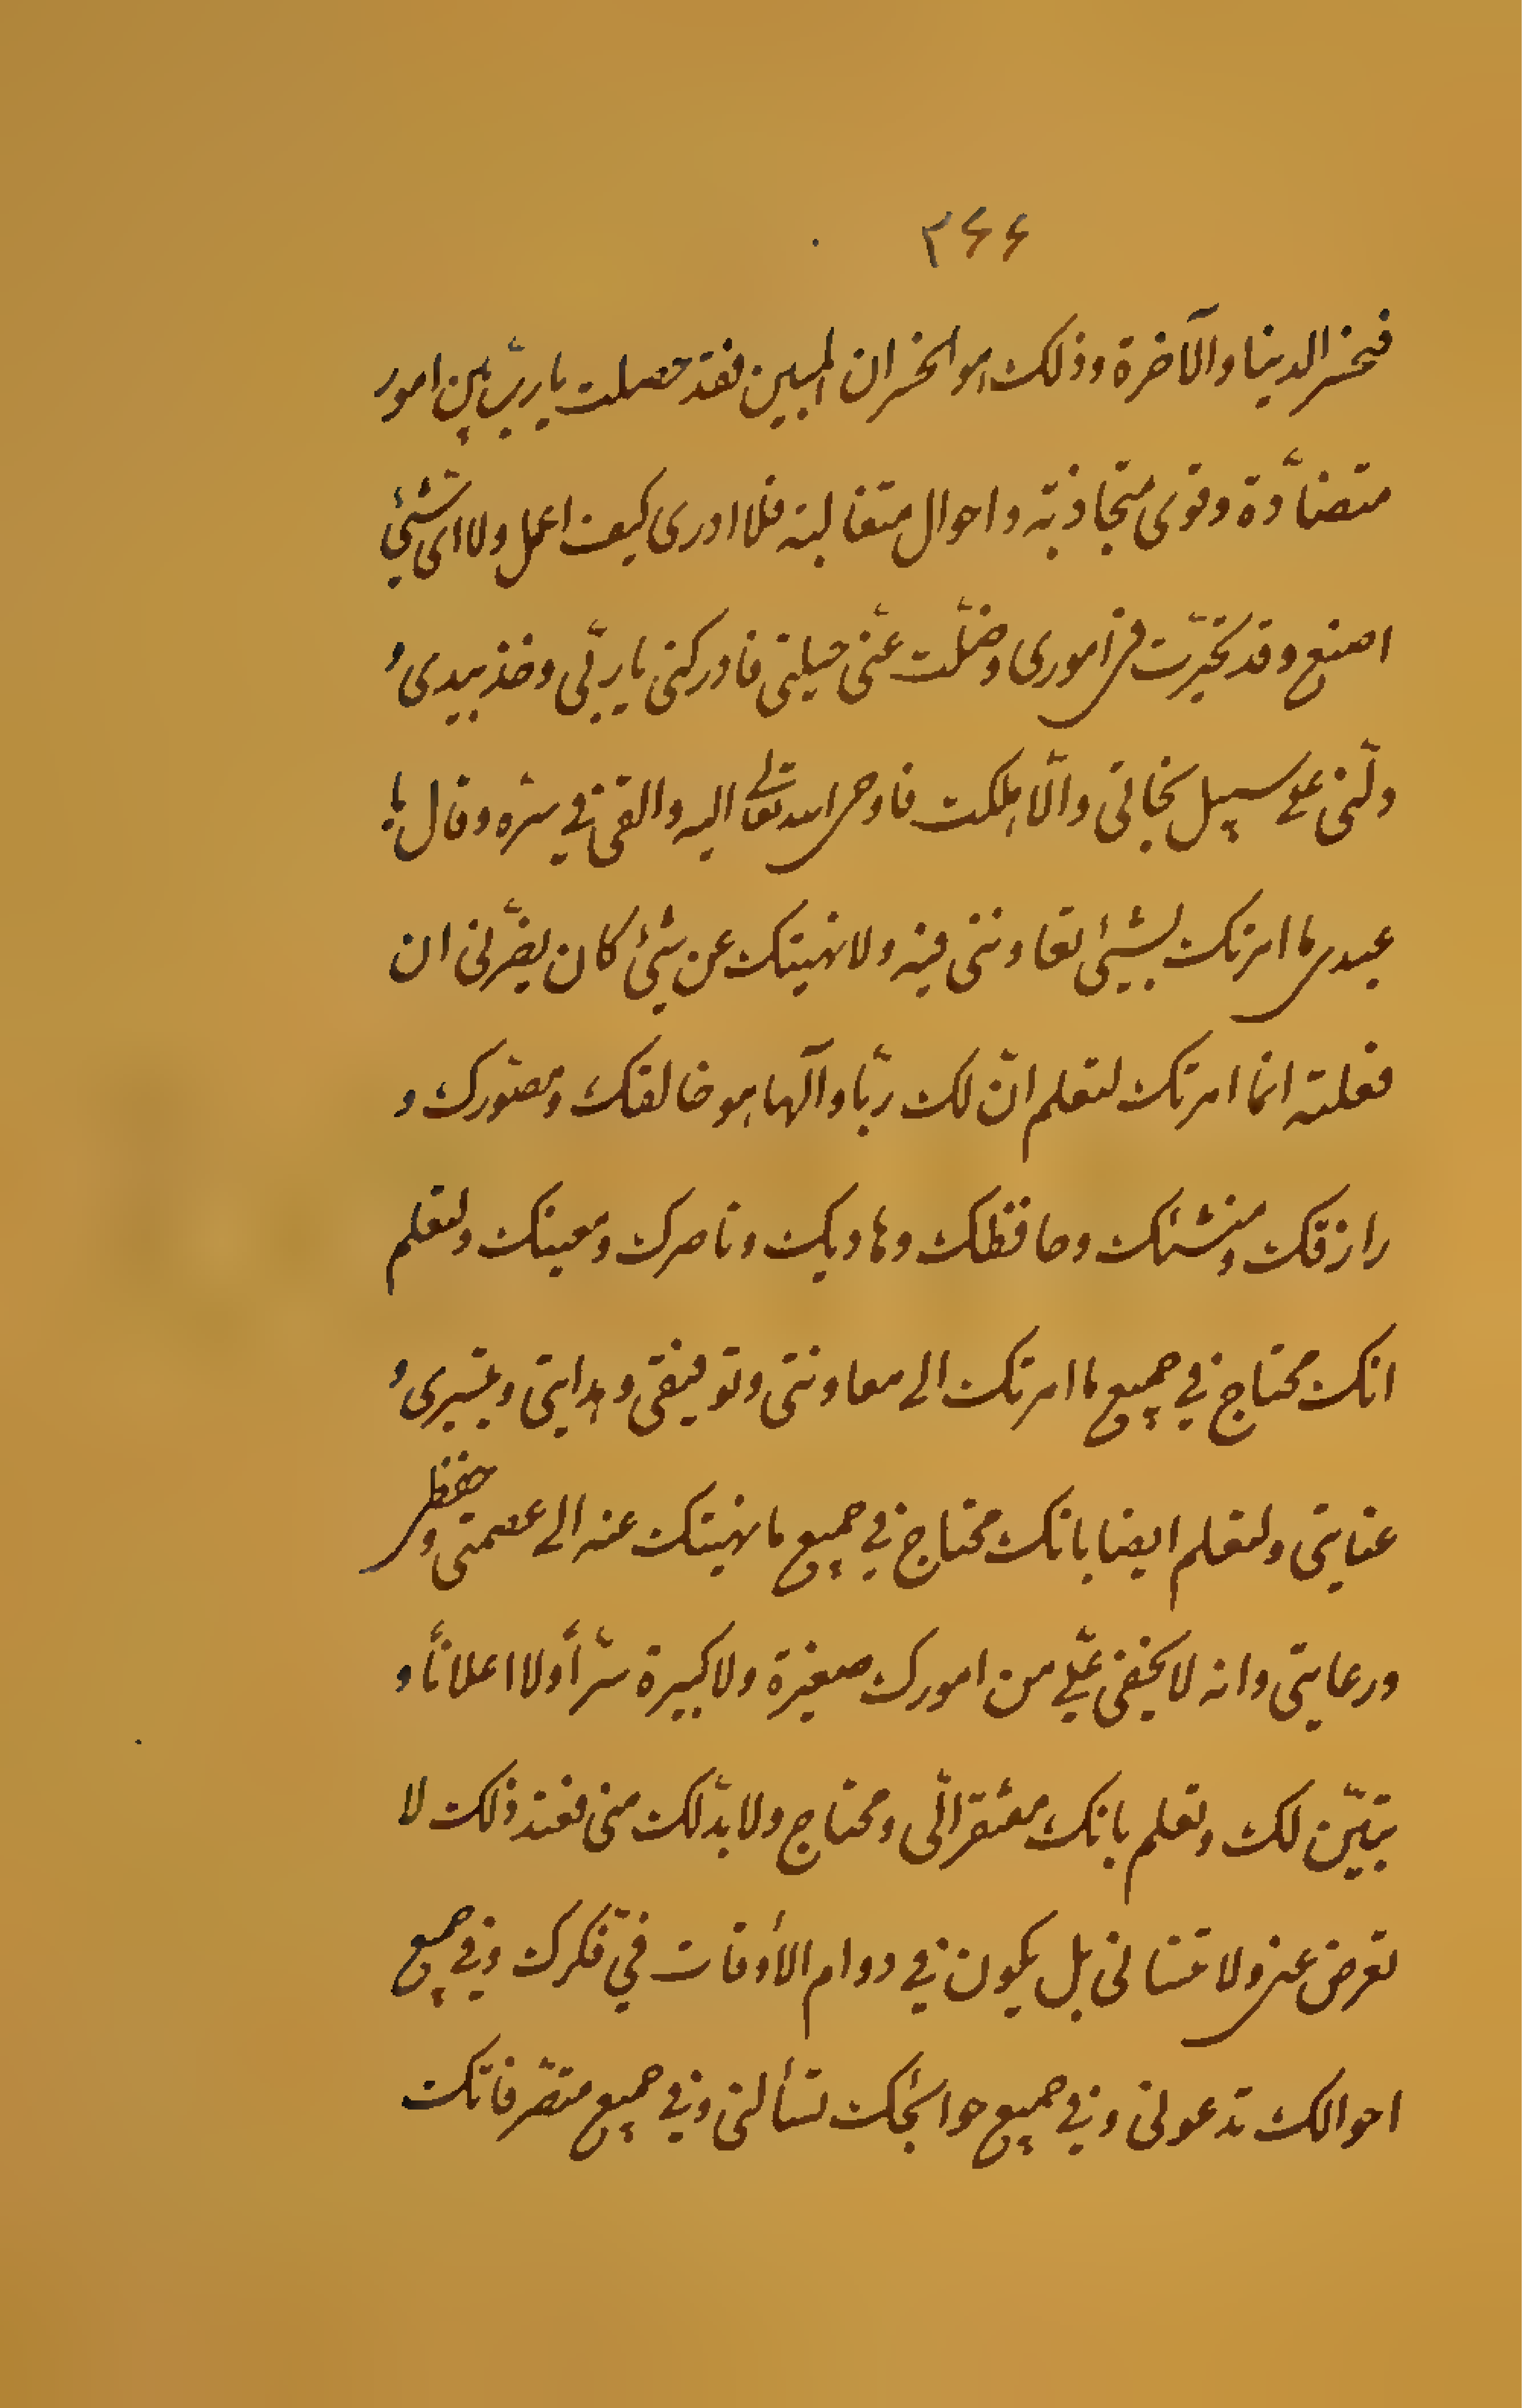 ۳۶۶
فخسر الدينا والآخرة وذلك هو الخسران المبين فقد حصلت يا ربّ بين امور
متضادّة وقوى متجاذبة واحوال متغالبة فلا ادرى كيف اعمل ولا اى شئ
اصنع وقد تحيّرت فى امورى وضلّت عنّى حيلتى فادركنى يا ربّى وخذ بيدى و
دلّنى على سبيل نجاتى والّا هلكت فاوحى الله تعالى اليه والقى فى سرّه وقال يا
عبدى ما امرتك بشيئ تعاوننى فيه ولا نهيتك عن شئ كان يضرّنى ان
فعلته انما امرتك لتعلم انّ لك ربّا وآلها هو خالقك ومصوّرك و
رازقك ومنشئك وحافظك وهاديك وناصرك ومعينك ولتعلم
انك محتاج في جميع ما امرتك الى معاونتى وتوفيقى وهدايتى وتيسيرى و
عنايتى ولتعلم ايضا بانك محتاج في جميع ما نهيتك عنه الى عصمتى وحفظى
ورعايتى وانه لا يخفى علىّ من امورك صغيرة ولا كبيرة سرّاً ولا اعلاناً و
يتبيّن لك وتعلم بانك مفتقر الّى ومحتاج ولا بدّ لك منى فعند ذلك لا
تعرض عنى ولا تنسانى بل يكون في دوام الأوقات فىّ فكرك وفي جميع
احوالك تدعونى وفي جميع حوائجك تسألنى وفي جميع متصرّفاتك